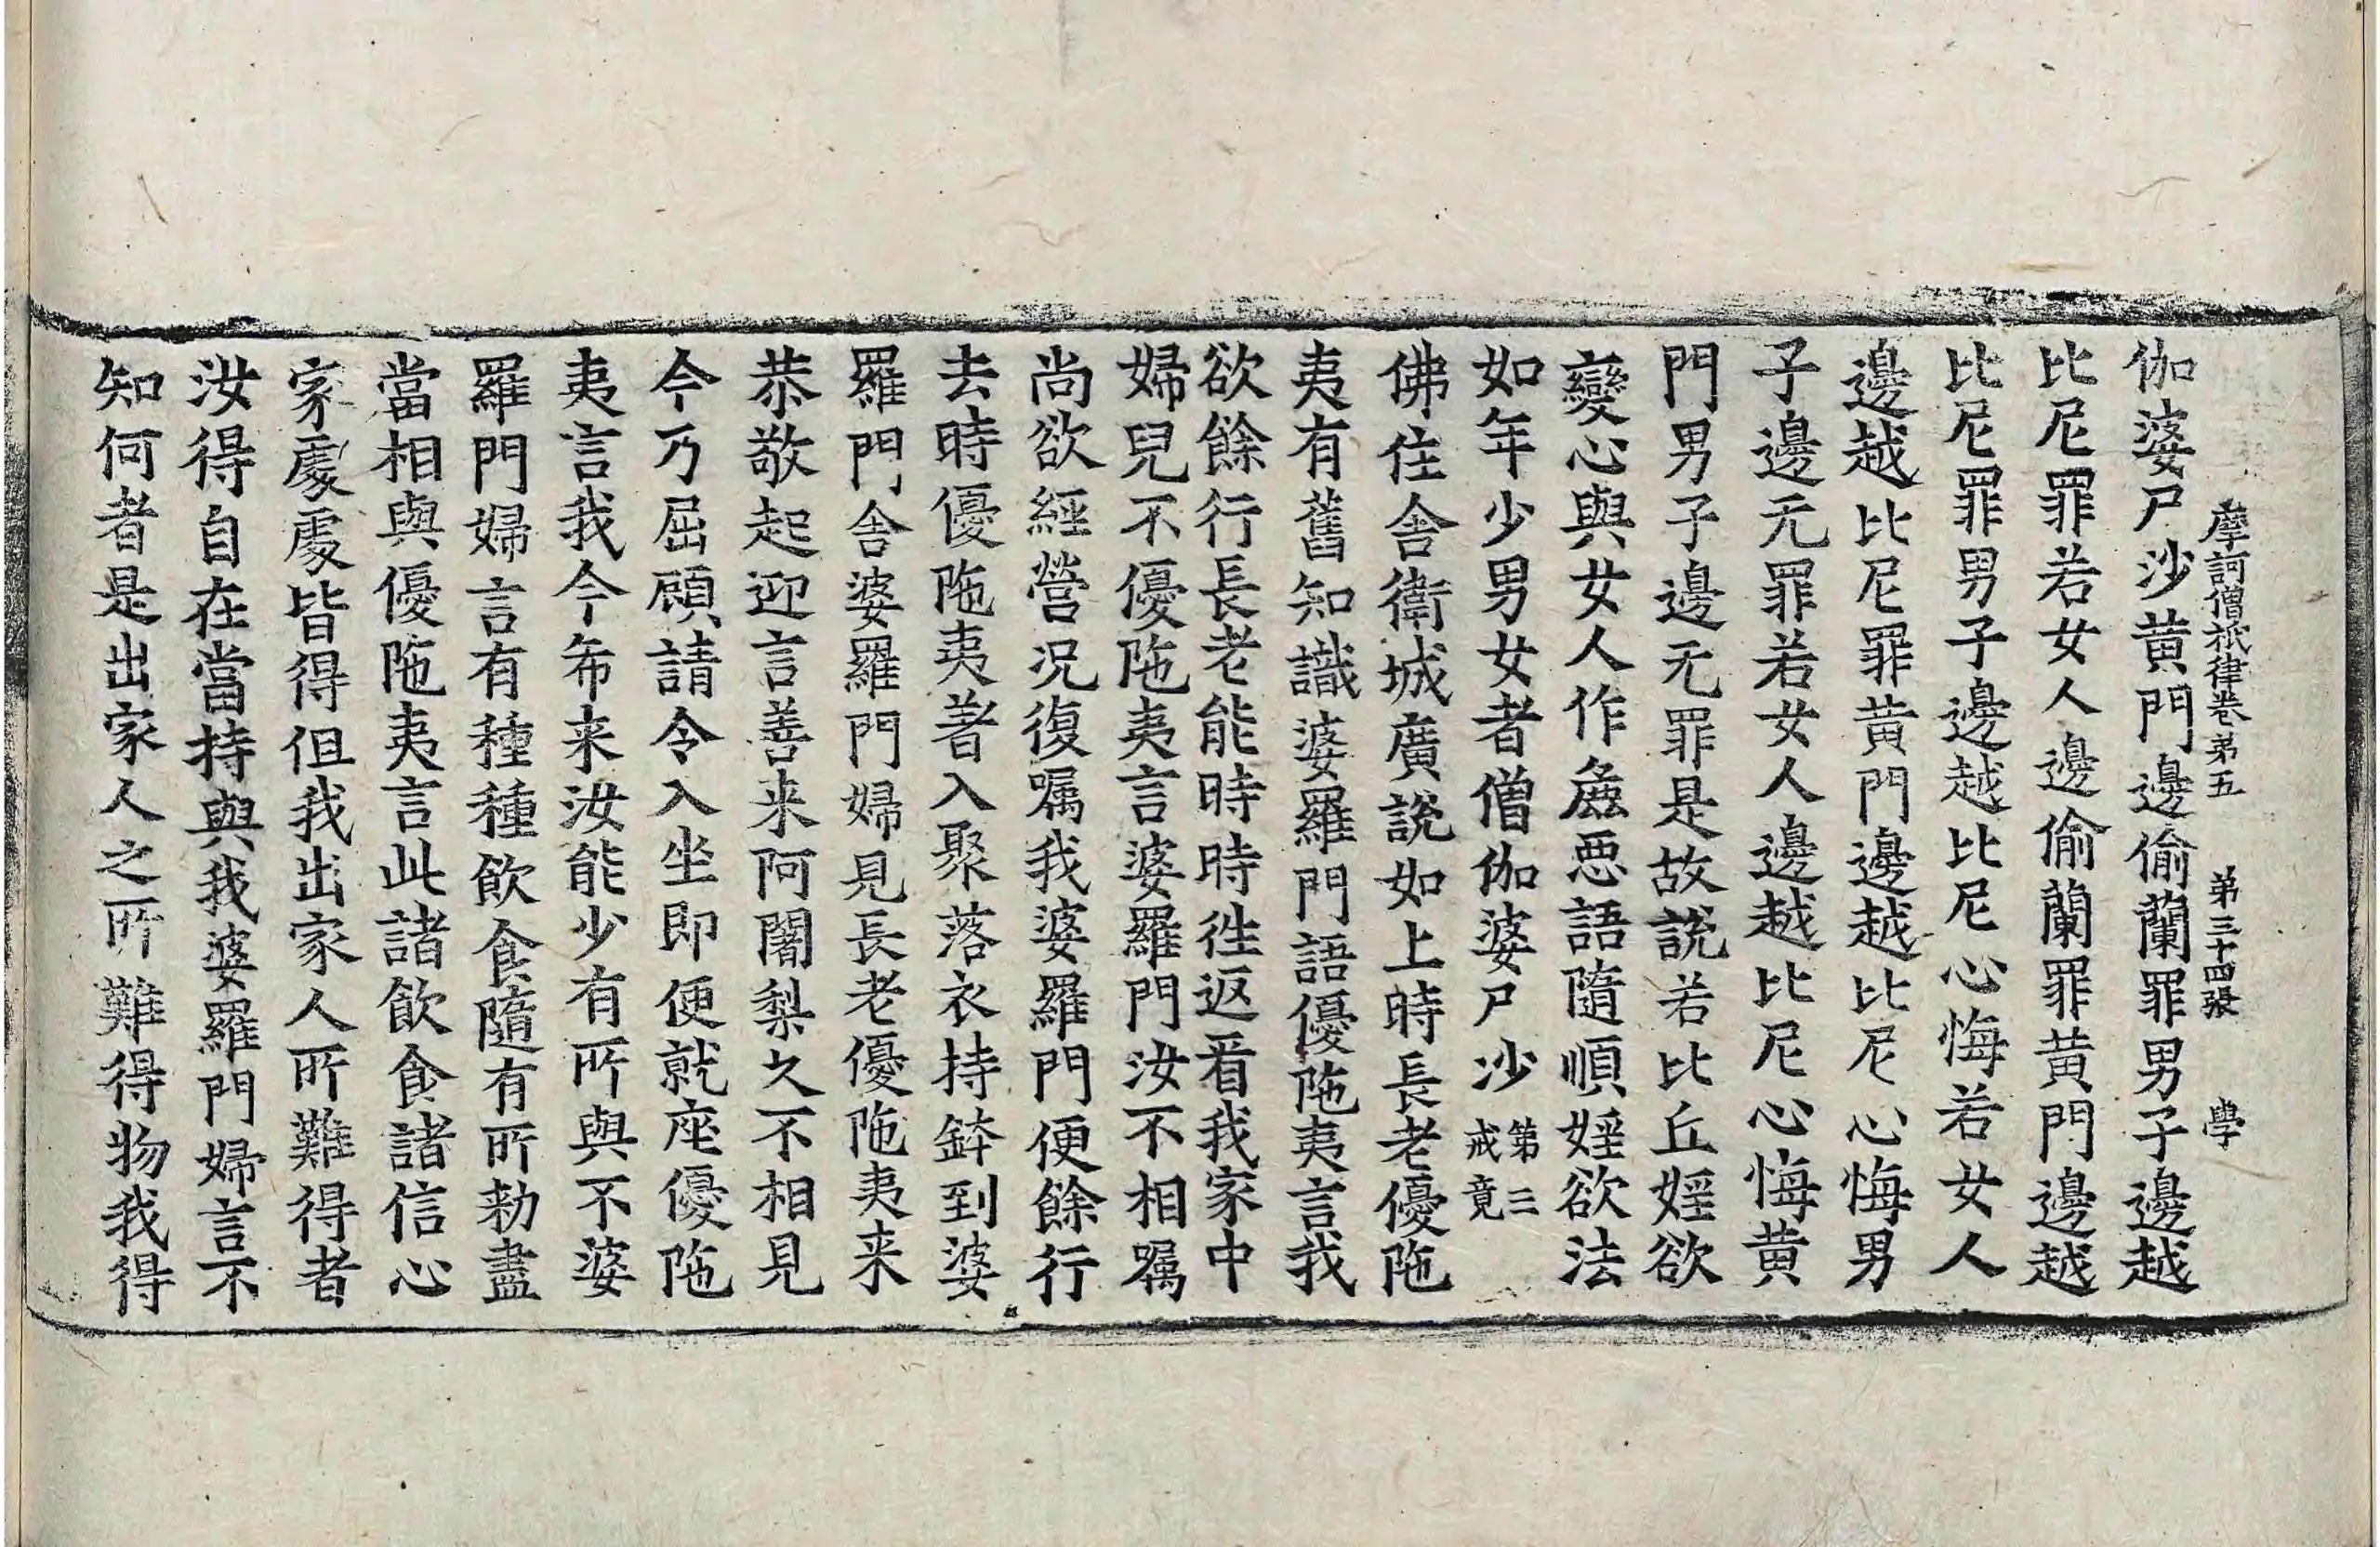 摩訶僧祇律卷苐五　苐三十四張　學
伽婆尸沙黄門邊偷蘭罪男子邊越
比尼罪若女人邊偷蘭罪黄門邊越
比尼罪男子邊越比尼心悔若女人
邊越比尼罪黄門邊越比尼心悔男
子邊无罪若女人邊越比尼心悔黄
門男子邊无罪是故說若比丘婬欲
變心與女人作麁惡語隨順婬欲法
如年少男女者僧伽婆尸沙第三戒竟
佛住舍衛城廣說如上時長老優陁
夷有舊知識婆羅門語優陁夷言我
欲餘行長老能時時徃返看我家中
婦兒不優陁夷言婆羅門汝不相嘱
尚欲經營况復嘱我婆羅門便餘行
去時優陁夷著入聚落衣持鉢到婆
羅門舍婆羅門婦見長老優陁夷来
恭敬起迎言善来阿闍梨久不相見
今乃屈顧請令入坐即便就座優陁
夷言我今希来汝能少有所與不婆
羅門婦言有種種飲食隨有所勑盡
當相與優陁夷言此諸飲食諸信心
家處處皆得但我出家人所難得者
汝得自在當持與我婆羅門婦言不
知何者是出家人之所難得物我得